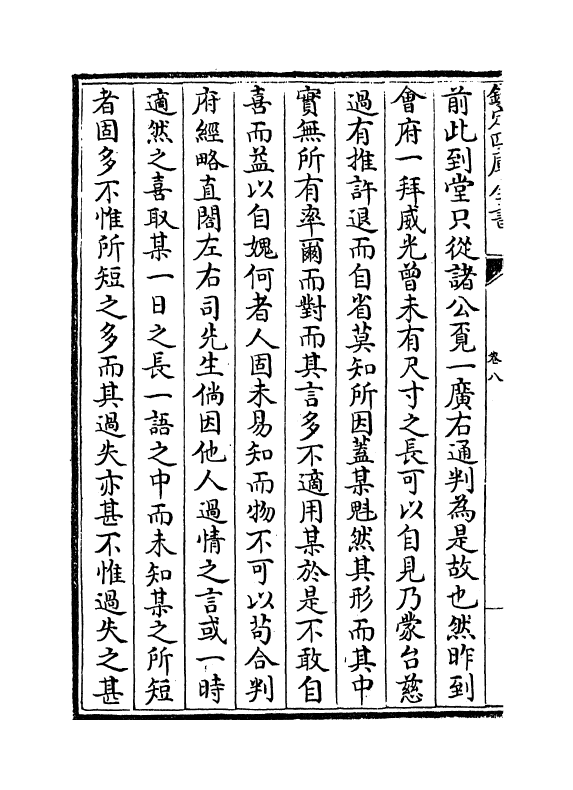 欽定四庫全書
卷八
前此到堂只從諸公覓一廣右通判為是故也然昨到
會府一拜威光曾未有尺寸之長可以自見乃蒙台慈
過有推許退而自省莫知所因蓋某魁然其形而其中
實無所有率爾而對而其言多不適用某於是不敢自
喜而益以自媿何者人固未易知而物不可以茍合判
府經略直閣左右司先生倘因他人過情之言或一時
適然之喜取某一日之長一語之中而未知某之所短
者固多不惟所短之多而其過失亦甚不惟過失之甚